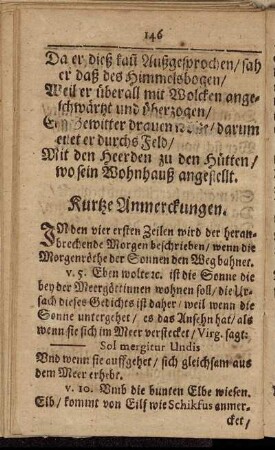 146
Da er dieß kaũ Außgesprochen / sah
er daß des Himmelsbogen /
Weil er überall mit Wolcken ange-
schwärtzt und überzogen /
Ein Gewitter drauen / darum
eilet er durchs Feld /
Mit den Heerden zu den Hütten /
wo sein Wohnhauß angestellt.
Kurtze Anmerckungen.
INden vier ersten Zeilen wird der heran-
brechende Morgen beschrieben / wenn die
Morgenröthe der Sonnen den Weg bahnet.
v. 5. Eben wolte ꝛc. ist die Sonne die
bey der Meergöttinnen wohnen soll / die Ur-
sach dieses Gedichts ist daher / weil wenn die
Sonne untergehet / es das Ansehn hat / als
wenn sie sich im Meer verstecket / Virg. sagt:
Sol mergitur Undis
Vnd wenn sie auffgehet / sich gleichsam aus
dem Meer erhebt.
v. 10. Vmb die bunten Elbe wiesen.
Elb / kommt von Eilf wie Schikfus anmer-
cket /